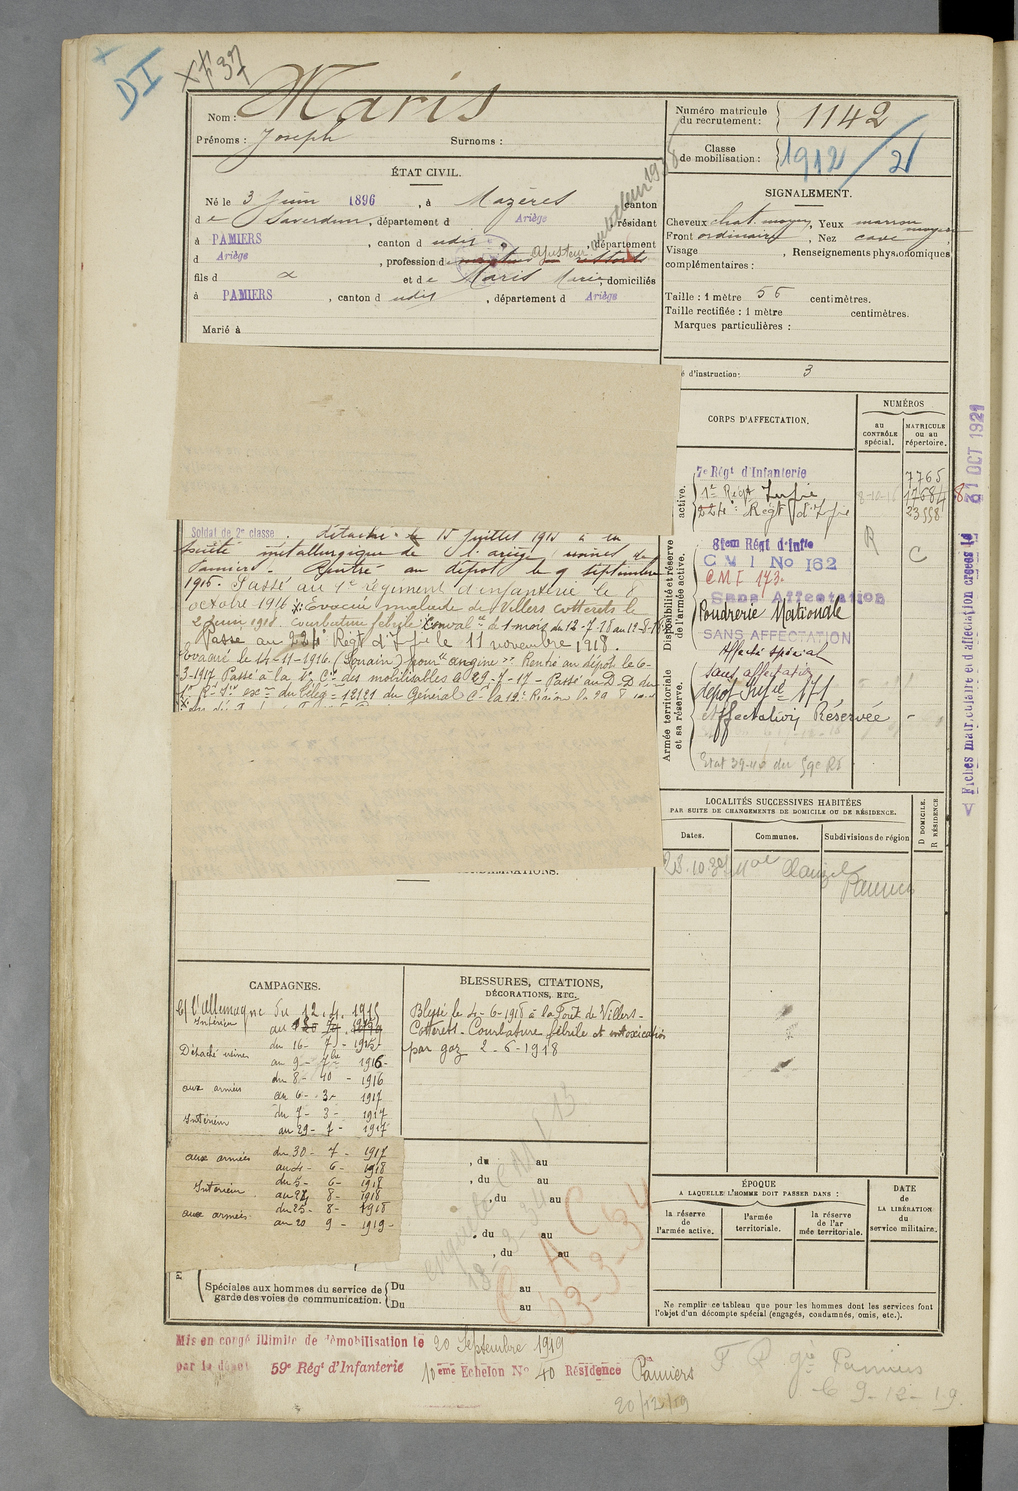 DI
37
Nom : Maris
Prénoms : Joseph Surnoms :
Numéro matricule du recrutement : 1142
Classe de mobilisation : 1912/21
ÉTAT CIVIL.
Né le 3 Juin 1896, à Mazères canton
de Saverdun, département d Ariège, résidant
à PAMIERS, canton d udit, département
d Ariège, profession d ajusteur
fils d et de Maris Marie, domiciliés
à PAMIERS, canton d udit, département d Ariège
Marié à
SIGNALEMENT.
Cheveux chat. moyen, Yeux marron moyen
Front ordinaire, Nez cave
Visage , Renseignements physionomiques
complémentaires :
Taille : 1 mètre 56 centimètres.
Taille rectifiée : 1 mètre centimètres.
Marques particulières :
d'instruction : 3
CORPS D'AFFECTATION.
NUMÉROS
au CONTRÔLE spécial.
MATRICULE ou au répertoire.
active.
7e Régt d'Infanterie 7765
1er Régt Inf'ie 8-10-16 17684
224e Régt d'Inf'ie 23558
Disponibilité et réserve de l'armée active.
81em Régt d'Infie R
C M I No 162 C
C M I 173.
Sans Affectation
Poudrerie Nationale
SANS AFFECTATION
Affecté spécial
Armée territoriale et sa réserve.
sans affectation
dépôt Inf'ie 171
Affectation Réservée
Fiches matriculaire et d'affectation créées le 21 OCT 1921
Soldat de 2e classe. détaché le 15 Juillet 1915 à la
Société métallurgique de l'Ariège usines de
Pamiers. Rentré au dépôt le 9 septembre
1916. Passé au 1er régiment d'infanterie le 8
octobre 1916 Evacué malade de Villers Cotterets le
2 Juin 1918. Courbature fébrile Convalce de 1 mois du 12-7-18 au 12-8-18
Passé au 224e Régt d'Inf'ie le 11 novembre 1918.
Evacué le 14-11-1916. (Souain) pour "angine" Rentré au dépôt le 6-
3-1917 Passé à la Cie des mobilisables le 29-7-17 - Passé au D.D. du
1er R. Iie exon du télég. 12121 du Général Ct la 12e Région le 29 8
LOCALITÉS SUCCESSIVES HABITÉES
PAR SUITE DE CHANGEMENTS DE DOMICILE OU DE RÉSIDENCE.
Dates. Communes. Subdivisions de région D DOMICILE. R RÉSIDENCE
Clauzel Pamiers
CAMPAGNES.
c/ l'Allemagne du 12.4.1915
Intérieur au
Détaché usines du 16- 7- 1915-
au 9- 7bre 1916-
aux armées du 8- 10 - 1916
au 6- 3- 1917
Intérieur du 7- 3- 1917
au 29- 7- 1917
aux armées du 30- 7- 1917
au 4- 6- 1918
Intérieur du 5- 6- 1918
au 24 8- 1918
aux armées du 25- 8- 1918
au 20 9- 1919-
BLESSURES, CITATIONS,
DÉCORATIONS, ETC.
Blessé le 4-6-1918 à la Forêt de Villers-
Cotterets - Courbature fébrile et intoxication
par gaz 2-6-1918
, du au
, du au
, du au
, du au
, du au
enquête CMI 13
18-3-34
C A C
23-3-34
Spéciales aux hommes du service de garde des voies de communication. Du au
Du au
ÉPOQUE
A LAQUELLE L'HOMME DOIT PASSER DANS :
la réserve de l'armée active.
l'armée territoriale.
la réserve de l'armée territoriale.
DATE de LA LIBÉRATION du service militaire.
Ne remplir ce tableau que pour les hommes dont les services font
l'objet d'un décompte spécial (engagés, condamnés, omis, etc.).
Mis en congé illimité de démobilisation le 20 Septembre 1919
par le dépôt 59e Régt d'Infanterie 10eme Echelon No 40 Résidence Pamiers
20/12/19
F R gve Pamiers
le 9-12-19.